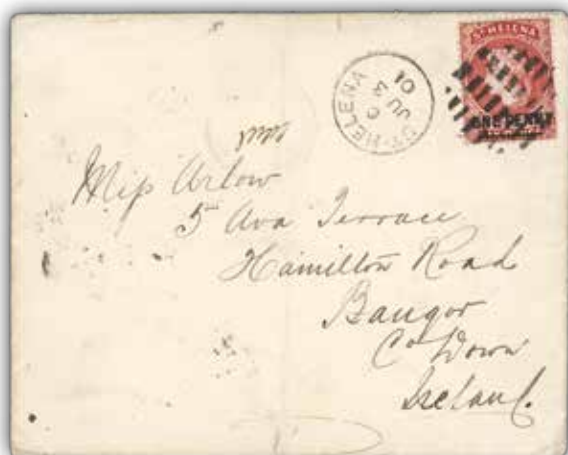 ST HELENA
ONE PENNY
ST. HELENA
C
JU 3
01
Miss Arlow
5 Ava Terrace
Hamilton Road
Bangor
Co Down
Ireland.